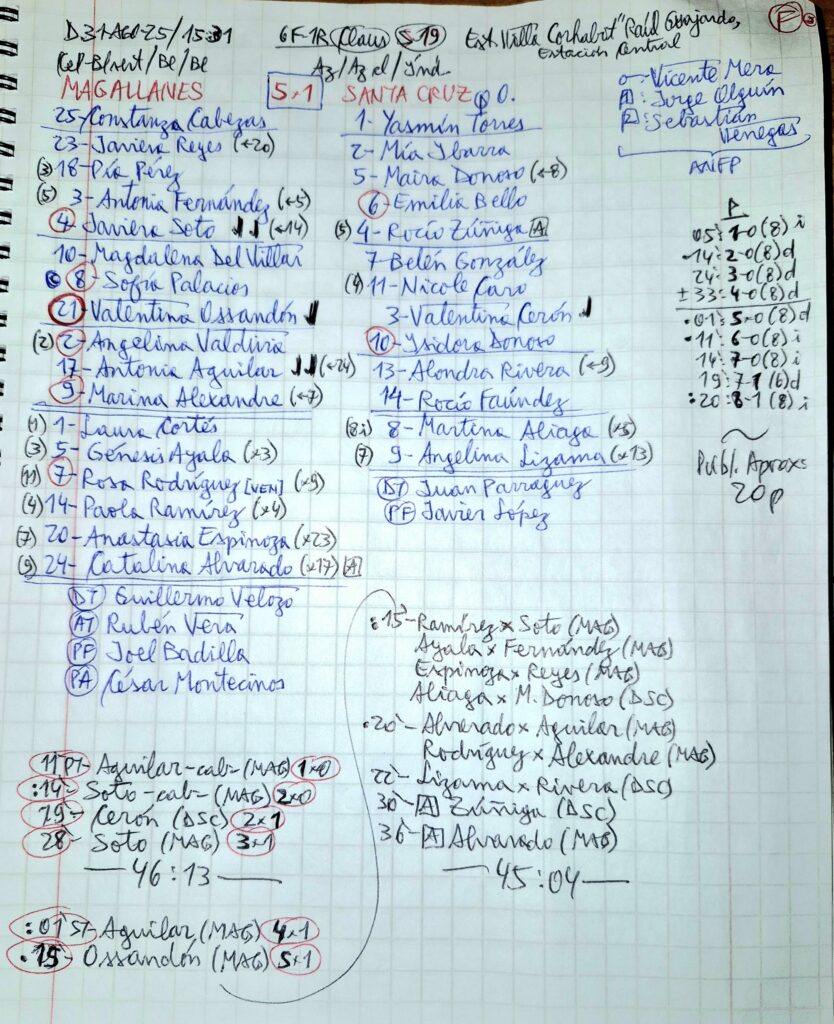 D31-AGO-25/15:31
Cel-Blvert/Be/Be
GF-1R Claus S-19
Az/Az cl/Ind.
Est. Villa Corhabit "Raúl Guajardo,
Estación Central
MAGALLANES 5x1 SANTA CRUZ
25-Constanza Cabezas
23-Javiera Reyes (←20)
(3) 18-Pía Pérez
(5) 3-Antonia Fernández (←5)
4-Javiera Soto (←14)
10-Magdalena Del Villar
C 8-Sofía Palacios
21-Valentina Ossandón
(2) 2-Angelina Valduvia
17-Antonia Aguilar (←24)
9-Marina Alexandre (←7)
(1) 1-Laura Cortés
(3) 5-Génesis Ayala (x3)
(11) 7-Rosa Rodríguez [VEN] (x9)
(4) 14-Paola Ramírez (x4)
(7) 20-Anastasia Espinoza (x23)
(9) 24-Catalina Alvarado (x17) A
DT Guillermo Velozo
AT Rubén Vera
PF Joel Badilla
PA César Montecinos
1-Yasmín Torres
2-Mía Ybarra
5-Maira Donoso (←8)
6-Emilia Bello
(5) 4-Rocío Zúñiga A
7-Belén González
(4) 11-Nicole Caro
3-Valentina Cerón
10-Ysidora Donoso
13-Alondra Rivera (←9)
14-Rocío Faúndez
(8i) 8-Martina Aliaga (x5)
(7) 9-Angelina Lizama (x13)
DT Juan Parraguez
PF Javier López
Vicente Mera
A: Jorge Olguín
A: Sebastián
Venegas
ANFP
P
05: 1-0 (8) i
14: 2-0 (8) d
24: 3-0 (8) d
±33: 4-0 (8) d
01: 5-0 (8) d
11: 6-0 (8) i
14: 7-0 (8) i
19: 7-1 (6) d
:20: 8-1 (8) i
Publ. Aproxs
20p
11 PT-Aguilar-cab-(MAG) 1x0
:14-Soto-cab-(MAG) 2x0
19-Cerón (DSC) 2x1
28-Soto (MAG) 3x1
—46:13—
:01 ST-Aguilar (MAG) 4x1
.15-Ossandón (MAG) 5x1
:15-Ramírez x Soto (MAG)
Ayala x Fernández (MAG)
Espinoza x Reyes (MAG)
Aliaga x M. Donoso (DSC)
.20-Alvarado x Aguilar (MAG)
Rodríguez x Alexandre (MAG)
22-Lizama x Rivera (DSC)
30-A Zúñiga (DSC)
36-A Alvarado (MAG)
—45:04—